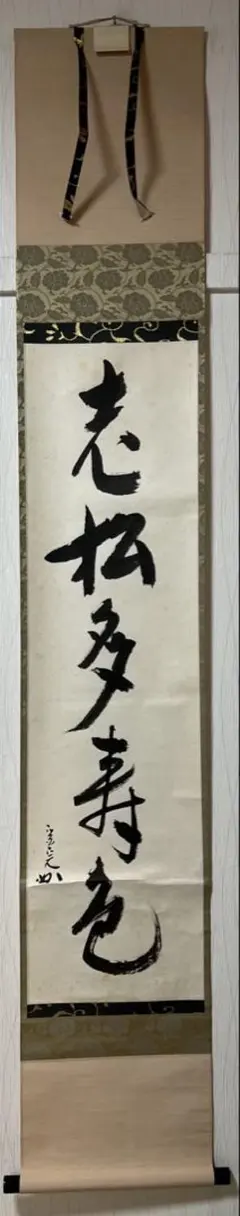 老松多寿色